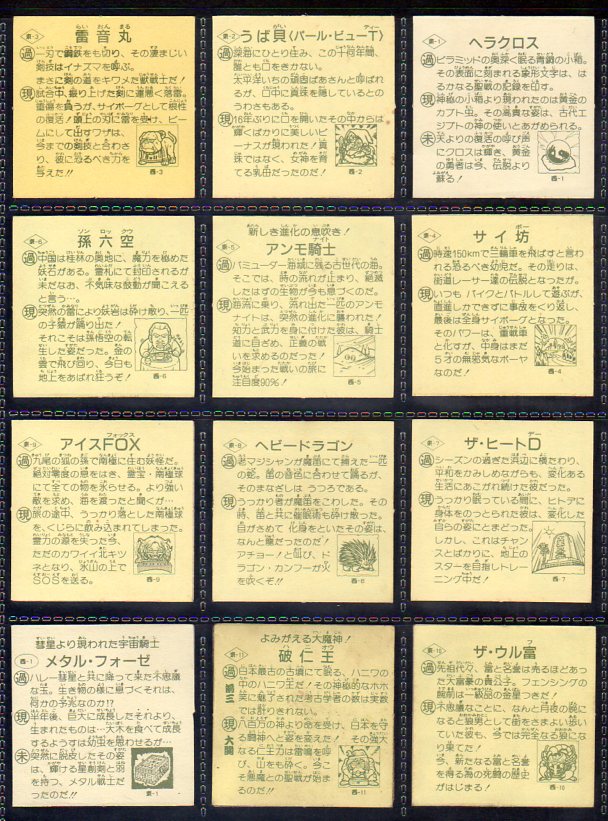 東-3
雷音丸
過 一刀で鋼鉄をも切り、その凄まじい
剣技はイナズマを呼ぶ。
まさに剣の道をキワメた獣戦士だ!
現 試合中、振り上げた剣に運悪く落雷。
重傷を負うが、サイボーグとして根性
の復活!頭上の刃に雷を受け、ビー
ムにして出すワザは、
今までの剣技と合わさ
り、彼に恐るべき力を
与えた!!
西-3
東-2
うば貝〈パール・ビューT〉
過 深海にひとり住み、この十何年間、
誰とも口をきかない。
太平洋いちの頑固ばあさんと呼ばれ
るが、口中に真珠を隠しているとの
うわさもある。
現 16年ぶりに口を開いたその中からは
輝くばかりに美しいビ
ーナスが現われた!真
珠ではなく、女神を育
てる乳母だったのだ!
西-2
東-1
ヘラクロス
過 ピラミッドの奥深く眠る青銅の小箱。
その表面に刻まれる象形文字は、は
るかなる聖戦の記録を印す。
現 神秘の小箱より現われたのは黄金の
カブト虫。その高貴な姿は、古代エ
ジプトの神の使いとあがめられる。
未 天よりの復活の呼び声
にクロスは輝き、黄金
の勇者は今、伝説より
蘇る!
西-1
東-6
孫六空
過 中国は桂林の奥地に、魔力を秘めた
妖石がある。霊札にて封印されるが
未だなお、不気味な鼓動が聞こえる
と言う…。
現 突然の雷により妖岩は砕け散り、一匹
の子猿が踊り出た!
それこそは孫悟空の転
生した姿だった。金の
雲で飛び回り、今日も
地上をあばれ狂うぞ!
西-6
東-5
新しき進化の息吹き!
アンモ騎士
過 バミューダー海域に残る古世代の海。
そこでは、時の流れが止まり、絶滅
したはずの生物が今も息づくのだ。
現 海流に乗り、流れ出た一匹のアンモ
ナイトは、突然の進化に襲われた!
知力と武力を身に付けた彼は、騎士
道に目ざめ、正義の戦
いを求めるのだった!
今始まった戦いの旅に
注目度90%!
西-5
東-4
サイ坊
過 時速150kmで三輪車を飛ばすと言わ
れる恐るべき幼児だ。その走りは、
街道レーサー達の伝説となったが。
現 いつもバイクとバトルして遊ぶが、
直進しかできずに事故をくり返し、
最後は全身サイボーグとなった。
そのパワーは、重戦車
と化すが、中身はまだ
5才の無邪気なボーヤ
なのだ!
西-4
東-9
アイスFOX
過 九尾の狐の孫で南極に住む妖怪だ。
絶対零度の息をはき、霊宝・南極球
にて全ての物を氷らせる。より強い
敵を求め、海を渡ったと聞くが…
現 旅の途中で、うっかり落とした南極球
を、くじらに飲み込まれてしまった。
霊力の源を失った今、
ただのカワイイ北キツ
ネとなり、氷山の上で
SOSを送る。
西-9
東-8
ヘビードラゴン
過 老マジシャンが魔笛にて捕えた一匹
の蛇。笛の音色に合わせて踊るが、
その本などしは うつろである。
現 うっかり者が魔笛をこわした。その
時、笛と共に催眠術も砕け散った。
自がさめて 化身をといたその姿は、
なんと龍だったのだ!
アチョー!と叫び、ド
ラゴン・カンフーが火
を吹くぞ!!
西-8
東-7
ザ・ヒートD
過 シーズンの過ぎた浜辺に横たわり、
平和をかみしめながらも、変化ある
生活にあこがれ続けた彼だった。
現 うっかり眠っている間に、ヒトデに
身体をのっとられた彼は、変化した
自らの姿にとまどった。
しかし、これはチャン
スとばかりに、地上の
スターを目指しトレー
ニング中だ!
西-7
彗星より現われた宇宙騎士
西-1
メタル・フォーゼ
過 ハレー彗星と共に降って来た不思議
な玉。生き物の様に息づくそれは、
何かの予兆なのか!?
現 半年後、巨大に成長したそれより、
生まれたものは…大木を食べて成長
するようすは幼虫を思わせるが…
未 突然に脱皮したその姿
は、輝ける星創剣と羽
を持つ、メタル戦士だ
ったのだ!!
東-1
東-11
よみがえる大魔神!
破仁王
過 日本最古の古墳にて眠る、ハニワの
中のハニワ王だ!その神秘的なホホ
笑に魅了された考古学者の数は実数
では計りきれない。
現 八百万の神より命を受け、日本を守
る闘神へと姿を変えた! その強大
なる仁王力は雷鳴を呼
び、山をも砕く。今こ
そ悪魔との聖戦が始ま
るのだ!!
西-11
東-10
ザ・ウル富
過 先祖代々、富と名誉は売るほどあっ
た大富豪の貴公子。フェンシングの
腕前は一級品の金星つきだ!
現 不思議なことに、なんと月夜の晩にな
ると狼男として街をさまよい歩いて
いた彼も、今では完全なる狼にな
り果てた!
今、新たなる富と名誉
を得る為の死闘の歴史
がはじまる!
西-10